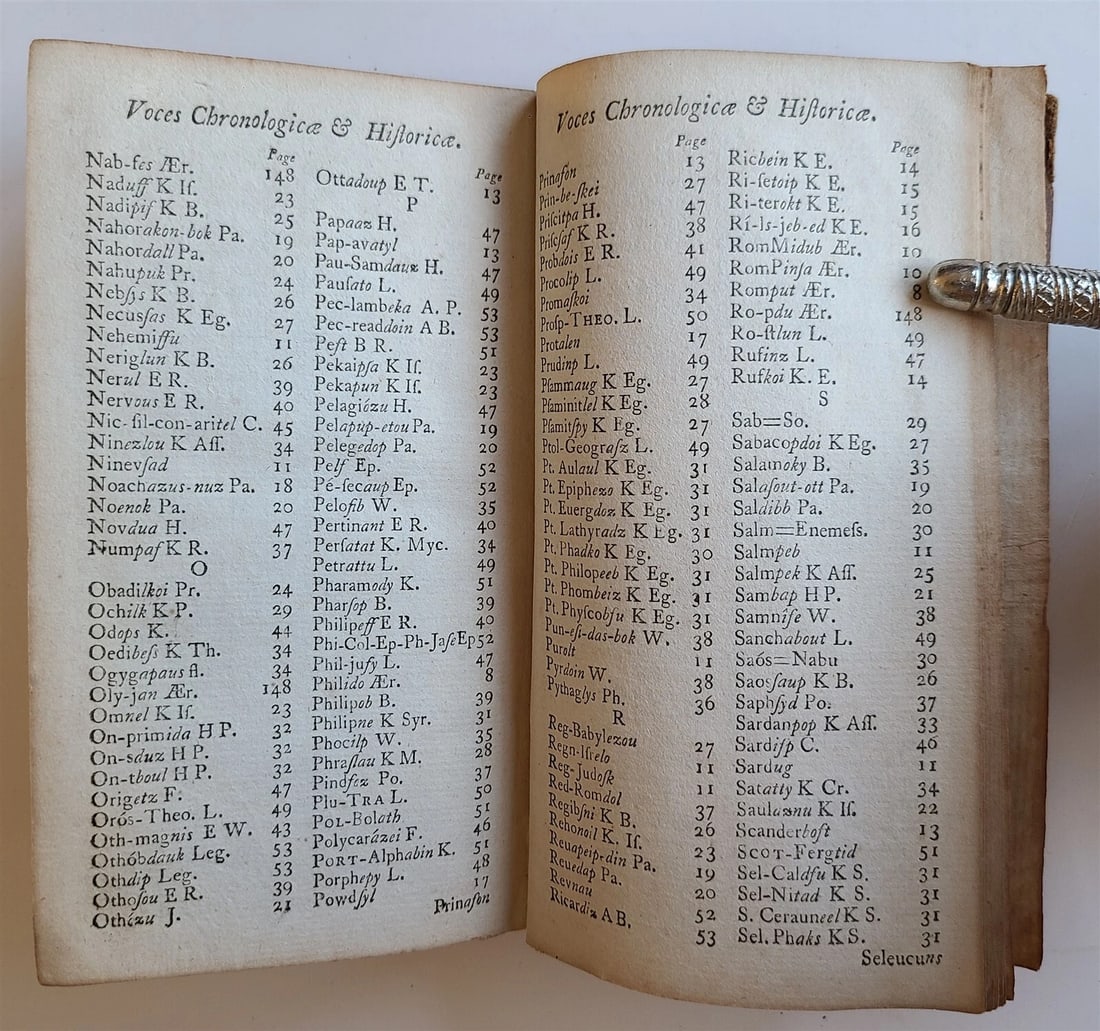 Voces Chronologicæ & Hiſtoricæ.
Page
Nab-fes Ær. 148
Naduff K Iſ. 23
Nadipiſ K B. 25
Nahorakon-bok Pa. 19
Nahordall Pa. 20
Nahupuk Pr. 24
Nebſys K B. 26
Necusſas K Eg. 27
Nehemiſſu 11
Neriglun K B. 26
Nerul E R. 39
Nervous E R. 40
Nic-ſil-con-aritel C. 45
Ninezlou K Aſſ. 34
Ninevſad 11
Noachazus-nuz Pa. 18
Noenok Pa. 20
Novdua H. 47
Numpaſ K R. 37
O
Obadilkoi Pr. 24
Ochilk K P. 29
Odops K. 44
Oedibeſs K Th. 34
Ogygapaus fl. 34
Oly-jan Ær. 148
Omnel K Iſ. 23
On-primida H P. 32
On-sduz H P. 32
On-thoul H P. 32
Origetz F. 47
Orós-Theo. L. 49
Oth-magnis E W. 43
Othóbdauk Leg. 53
Othdip Leg. 53
Othoſou E R. 39
Othézu J. 21
Page
Ottadoup E T. 13
P
Papaaz H. 47
Pap-avatyl 13
Pau-Samdaux H. 47
Pauſato L. 49
Pec-lambeka A. P. 53
Pec-readdoin A B. 53
Peſt B R. 51
Pekaipſa K Iſ. 23
Pekapun K Iſ. 23
Pelagiózu H. 47
Pelapup-etou Pa. 19
Pelegedop Pa. 20
Pelf Ep. 52
Pé-ſecaup Ep. 52
Pelofib W. 35
Pertinant E R. 40
Perſatat K. Myc. 34
Petrattu L. 49
Pharamody K. 51
Pharſop B. 39
Philipeff E R. 40
Phi-Col-Ep-Ph-Jaſe Ep 52
Phil-juſy L. 47
Philido Ær. 8
Philipob B. 39
Philipne K Syr. 31
Phocilp W. 35
Phraſlau K M. 28
Pindfez Po. 37
Plu-TRA L. 50
POL-Boloth 51
Polycarázei F. 46
PORT-Alphabin K. 51
Porphepy L. 48
Powdſyl 17
Prinaſon
Voces Chronologicæ & Hiſtoricæ.
Page
Prinaſon 13
Prin-be-ſkei 27
Priſcitpa H. 47
Priſcſaf K R. 38
Probdois E R. 41
Procolip L. 49
Promaſkoi 34
Proſp-THEO. L. 50
Protalen 17
Prudinp L. 49
Pſammaug K Eg. 27
Pſaminitlel K Eg. 28
Pſamitſpy K Eg. 27
Ptol-Geograſz L. 49
Pt. Aulaul K Eg. 31
Pt. Epiphezo K Eg. 31
Pt. Euergdoz K Eg. 31
Pt. Lathyradz K Eg. 31
Pt. Phadko K Eg. 30
Pt. Philopeeb K Eg. 31
Pt. Phombeiz K Eg. 31
Pt. Phyſcobſu K Eg. 31
Pun-eſi-das-bok W. 38
Purolt 11
Pyrdoin W. 38
Pythaglys Ph. 36
R
Reg-Babylezou 27
Regn-Iſrelo 11
Reg-Judoſk 11
Red-Romdol 37
Regibſni K B. 26
Rehonoil K. Iſ. 23
Reuapeip-din Pa. 19
Reuedap Pa. 20
Revnau 52
Ricardiz A B. 53
Page
Ricbein K E. 14
Ri-ſetoip K E. 15
Ri-terokt K E. 15
Rí-ls-jeb-ed K E. 16
RomMidub Ær. 10
RomPinſa Ær. 10
Romput Ær. 8
Ro-pdu Ær. 148
Ro-ſtlun L. 49
Rufinz L. 47
Rufkoi K. E. 14
S
Sab=So. 29
Sabacopdoi K Eg. 27
Salamoky B. 35
Salaſout-ott Pa. 19
Saldibb Pa. 20
Salm=Enemeſs. 30
Salmpeb 11
Salmpek K Aſſ. 25
Sambap H P. 21
Samniſe W. 38
Sanchabout L. 49
Saós=Nabu 30
Saosſaup K B. 26
Saphſyd Po. 37
Sardanpop K Aſſ. 33
Sardiſp C. 46
Sardug 11
Satatty K Cr. 34
Saulaznu K Iſ. 22
Scanderboſt 13
SCOT-Fergtid 51
Sel-Caldſu K S. 31
Sel-Nitad K S. 31
S. Cerauneel K S. 31
Sel. Phaks K S. 31
Seleucuns